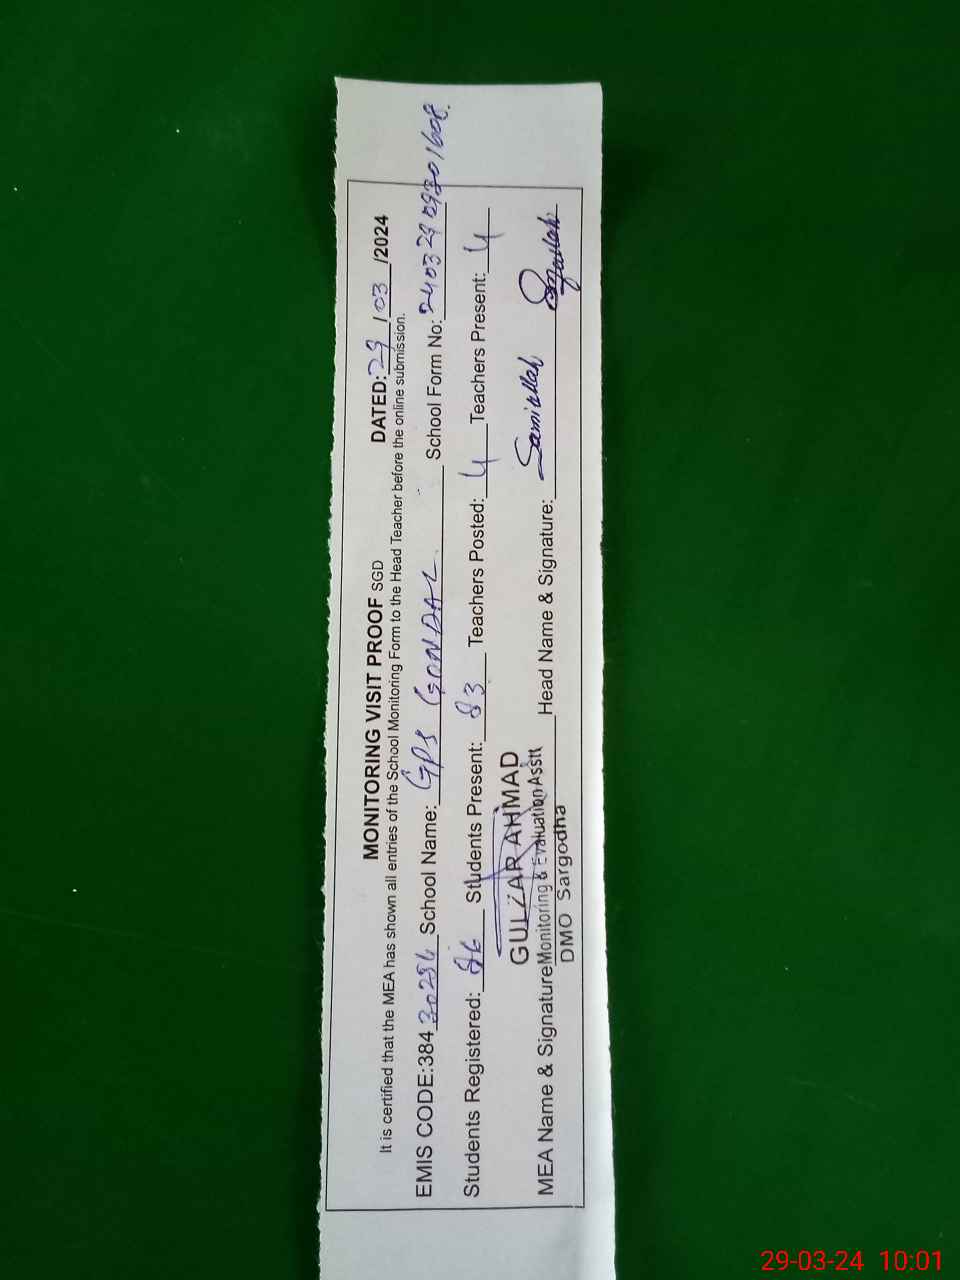 MONITORING VISIT PROOF SGD DATED: 29/03/2024
It is certified that the MEA has shown all entries of the School Monitoring Form to the Head Teacher before the online submission.
EMIS CODE:384 30256 School Name: GPS GONDAL School Form No:
Students Registered: 86 Students Present: 83 Teachers Posted: 4 Teachers Present: 4
GULZAR AHMAD
MEA Name & Signature Monitoring & Evaluation Asstt Head Name & Signature: Samiullah Samiullah
DMO Sargodha
29-03-24 10:01